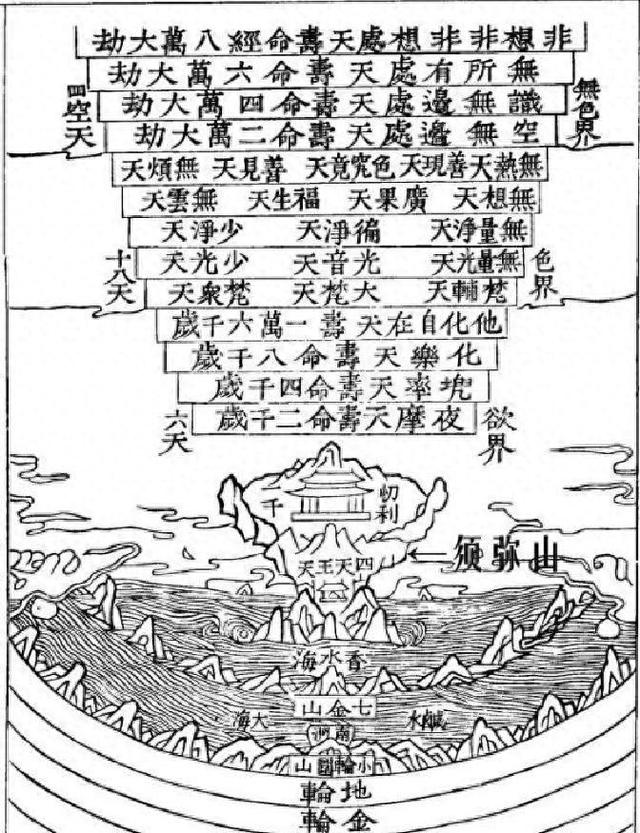 非想非非想處天壽命經八萬大劫
無所有處天壽命六萬大劫
識無邊處天壽命四萬大劫
空無邊處天壽命二萬大劫
無色界
四空天
無熱天 善現天 色究竟天 善見天 無煩天
無想天 廣果天 福生天 無雲天
無量淨天 徧淨天 少淨天
無量光天 光音天 少光天
梵輔天 大梵天 梵衆天
色界
十八天
他化自在天壽一萬六千歲
化樂天壽命八千歲
兜率天壽命四千歲
夜摩天壽命二千歲
欲界
六天
忉利
千
四天王天
须弥山
香水海
七金山
鹹水
大海
小輪圍山
地輪
金輪